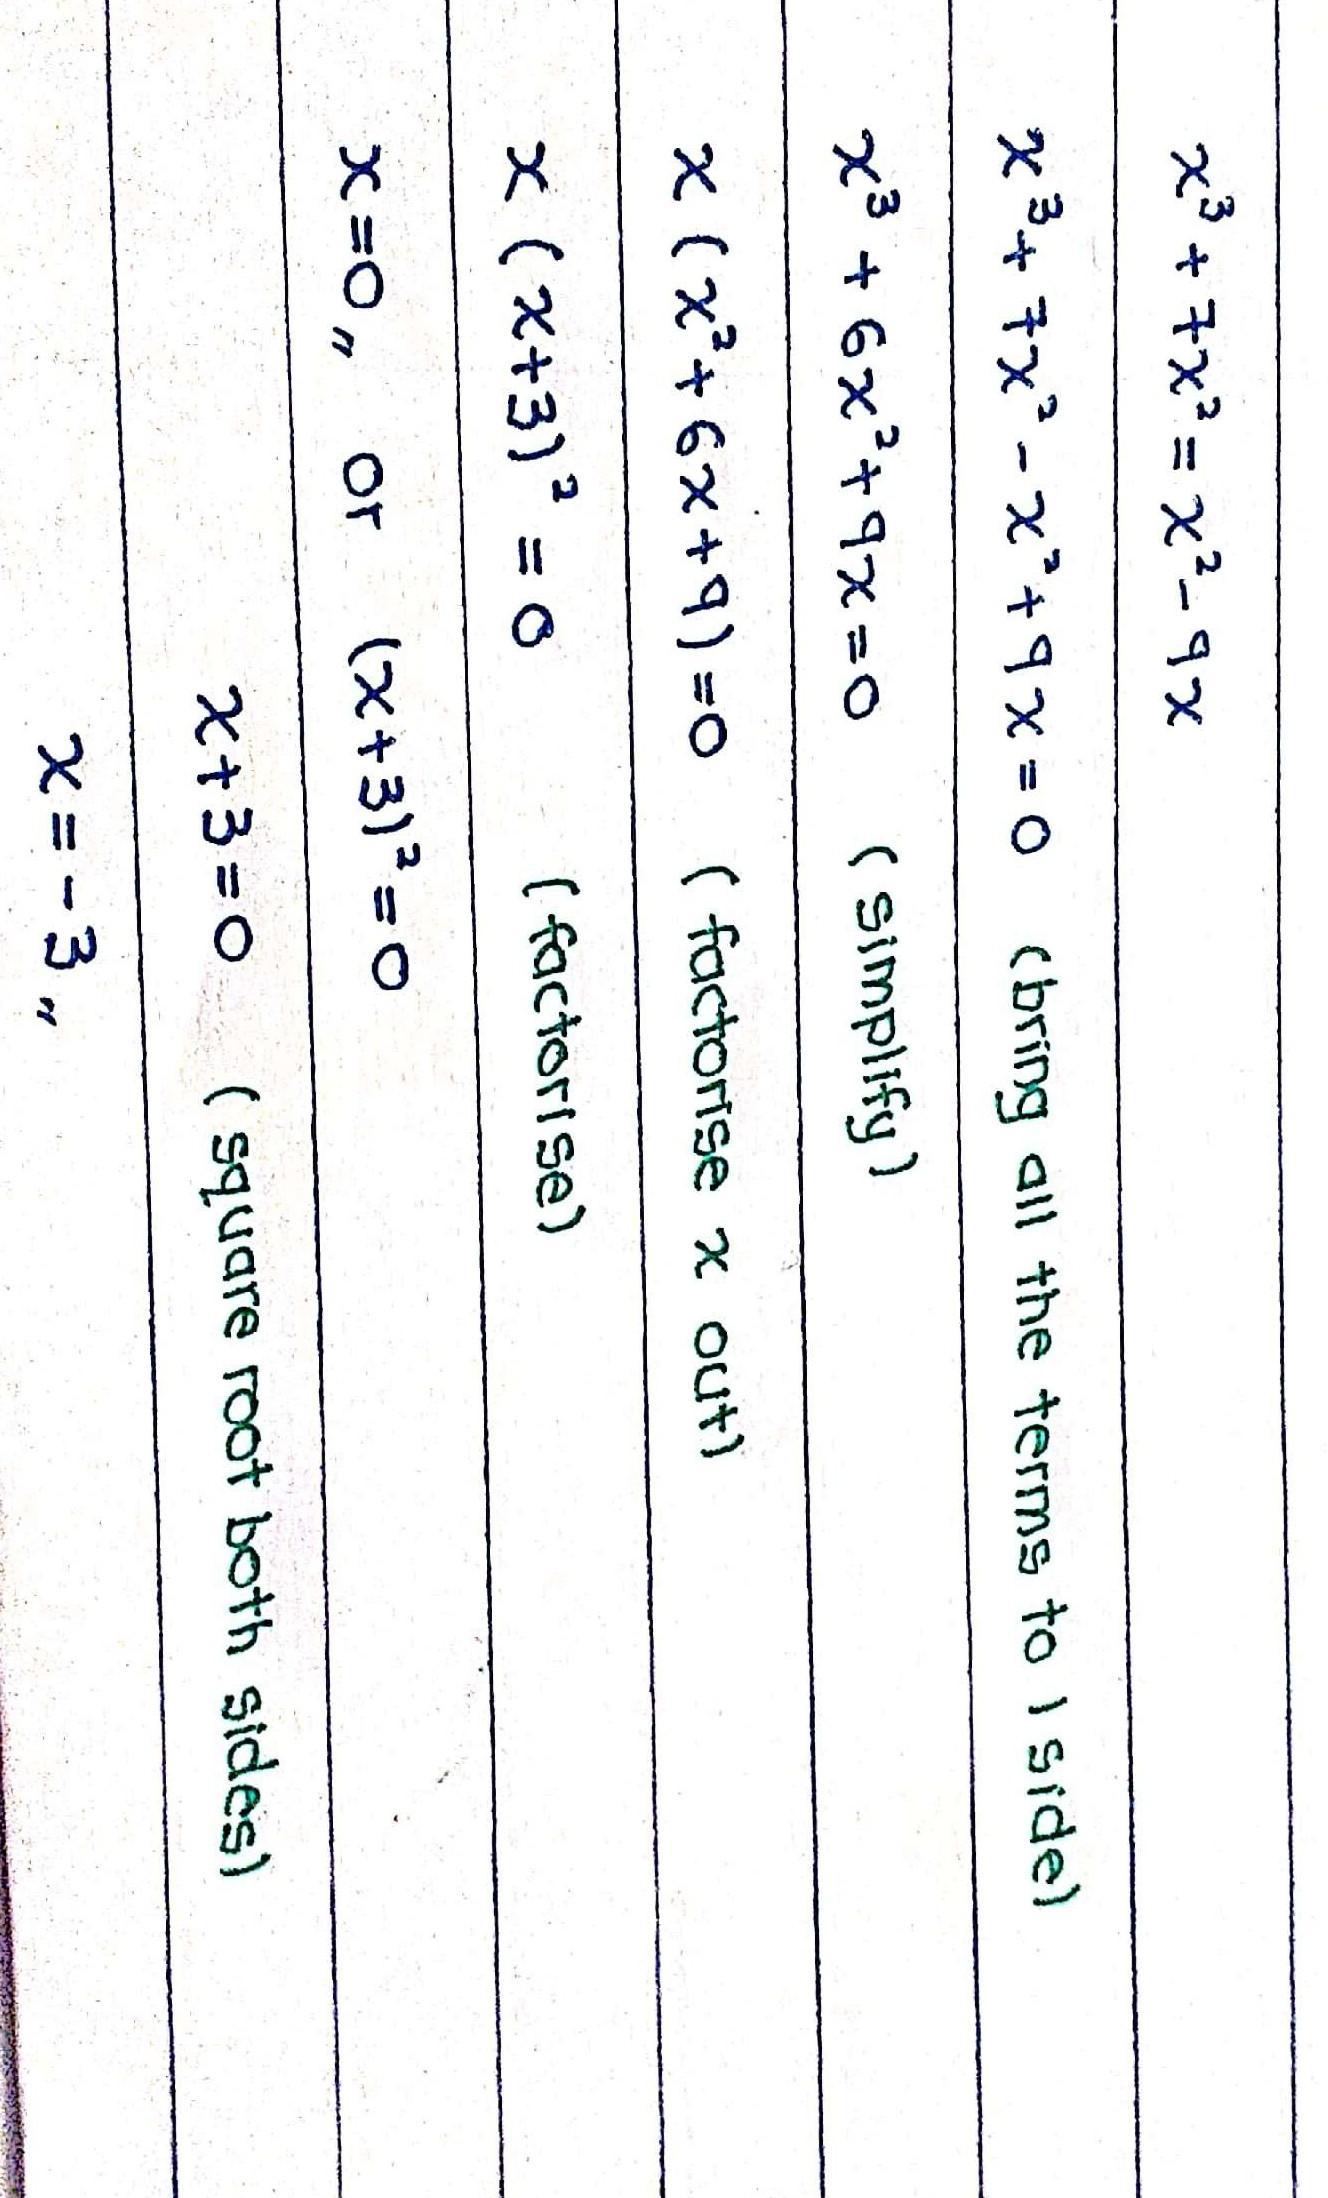 x³ + 7x² = x² - 9x
x³ + 7x² - x² + 9x = 0 (bring all the terms to 1 side)
x³ + 6x² + 9x = 0 (simplify)
x (x² + 6x + 9) = 0 (factorise x out)
x (x+3)² = 0 (factorise)
x = 0,, or (x+3)² = 0
x + 3 = 0 (square root both sides)
x = -3,,